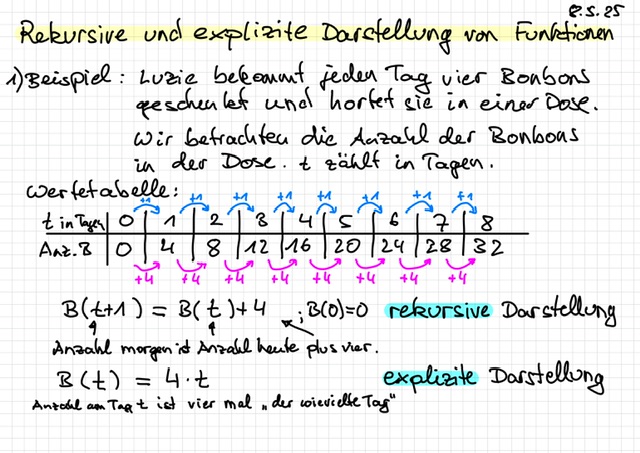 8.5.25
Rekursive und explizite Darstellung von Funktionen
1) Beispiel: Luzie bekommt jeden Tag vier Bonbons
geschenkt und hortet sie in einer Dose.
Wir betrachten die Anzahl der Bonbons
in der Dose. t zählt in Tagen.
Wertetabelle:
+1 +1 +1 +1 +1 +1 +1 +1
t in Tagen 0 1 2 3 4 5 6 7 8
Anz. B 0 4 8 12 16 20 24 28 32
+4 +4 +4 +4 +4 +4 +4 +4
B(t+1) = B(t)+4 ; B(0)=0 rekursive Darstellung
Anzahl morgen ist Anzahl heute plus vier.
B(t) = 4·t explizite Darstellung
Anzahl am Tag t ist vier mal „der wievielte Tag"